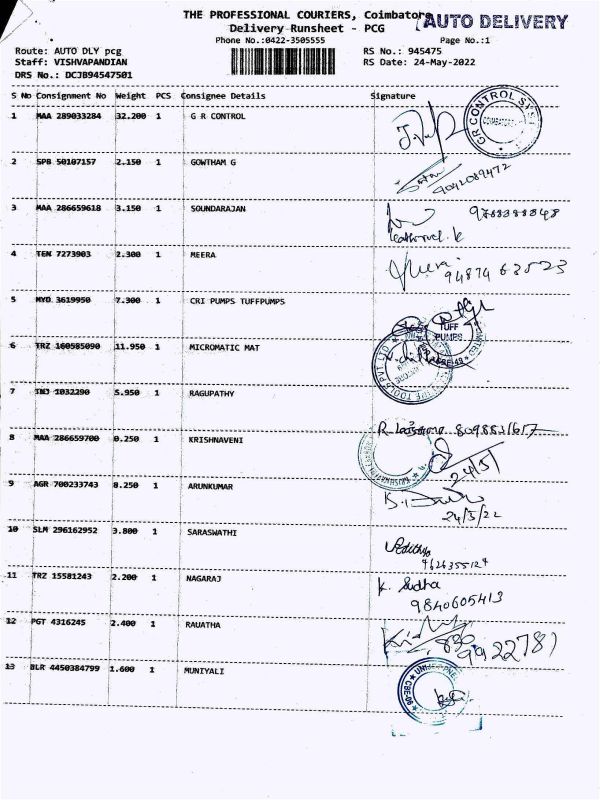 THE PROFESSIONAL COURIERS, Coimbatore
AUTO DELIVERY
Delivery Runsheet - PCG
Phone No.:0422-3505555
Page No.:1
Route: AUTO DLY pcg
RS No.: 945475
Staff: VISHVAPANDIAN
RS Date: 24-May-2022
DRS No.: DCJB94547501
S No Consignment No Weight PCS Consignee Details Signature
1 MAA 289033284 32.200 1 G R CONTROL
GR CONTROL SYST
COIMBATORE
2 SPB 50107157 2.150 1 GOWTHAM G
9042089472
3 MAA 286659618 3.150 1 SOUNDARAJAN
4 TEN 7273903 2.300 1 MEERA
Meera
5 MYD 3619950 7.300 1 CRI PUMPS TUFFPUMPS
TUFF
PUMPS
6 TRZ 160585090 11.950 1 MICROMATIC MAT
TOOLS PVT LTD
7 TNJ 1032290 5.950 1 RAGUPATHY
8 MAA 286659700 0.250 1 KRISHNAVENI
24/5/
9 AGR 700233743 8.250 1 ARUNKUMAR
24/5/22
10 SLM 296162952 3.800 1 SARASWATHI
Adithya
11 TRZ 15581243 2.200 1 NAGARAJ
K. Sudha
9840605413
12 PGT 4316245 2.400 1 RAUATHA
13 BLR 4450384799 1.600 1 MUNIYALI